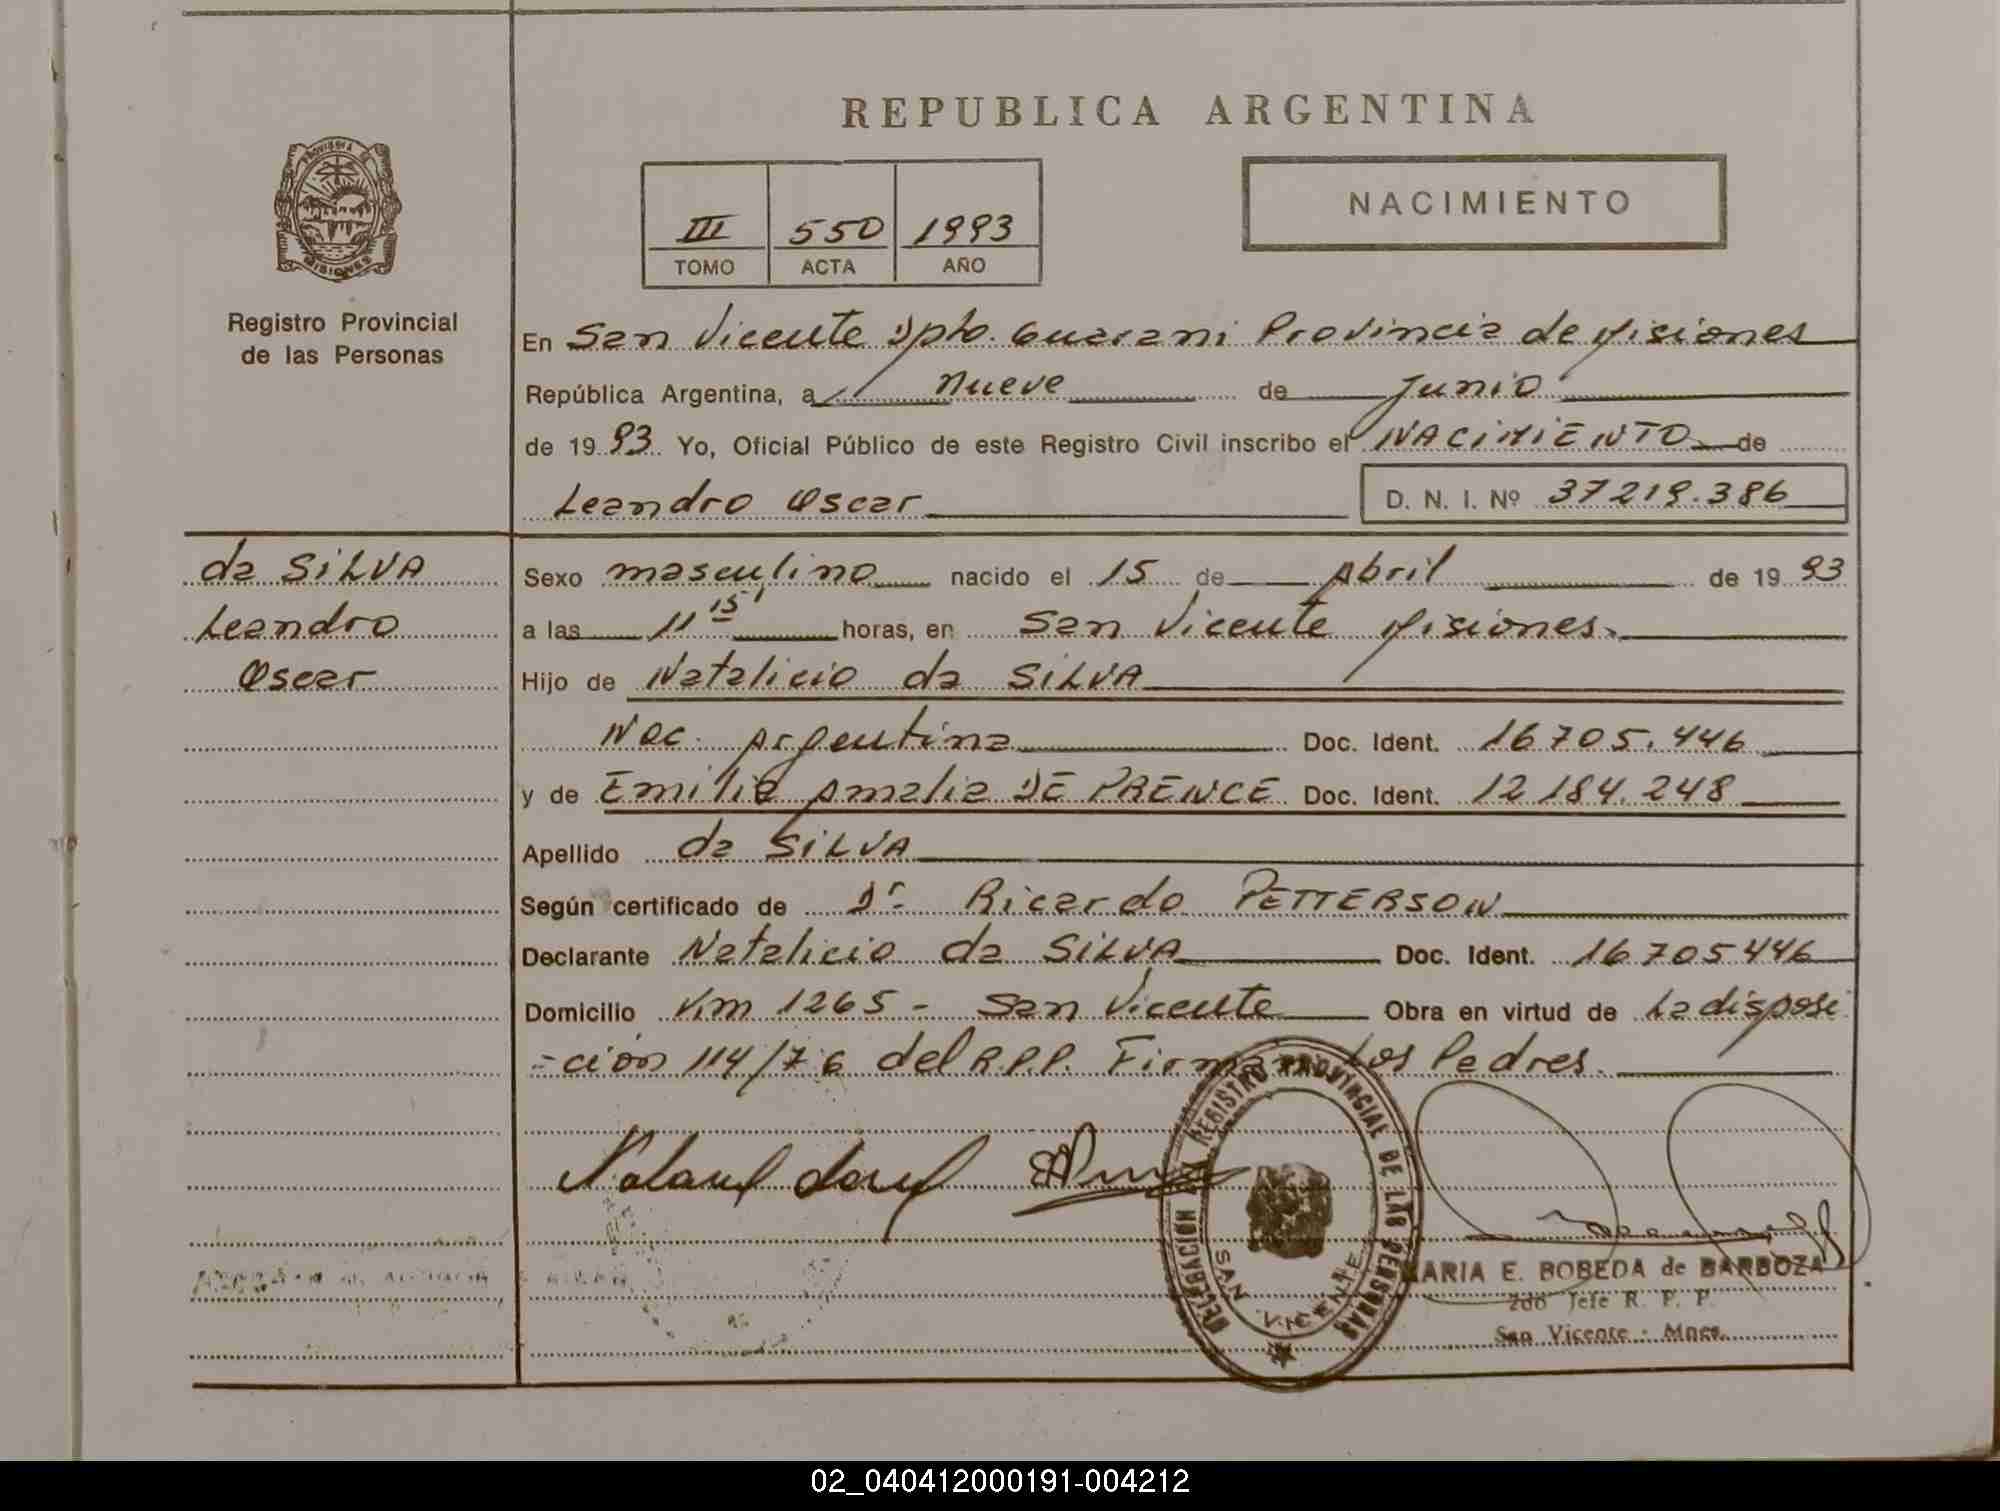 REPUBLICA ARGENTINA
PROVINCIA DE
MISIONES
Registro Provincial
de las Personas
III 550 1993
TOMO ACTA AÑO
NACIMIENTO
En San Vicente Dpto. Guarani Provincia de Misiones
República Argentina, a nueve de Junio
de 1993. Yo, Oficial Público de este Registro Civil inscribo el NACIMIENTO de
Leandro Oscar D. N. I. Nº 37219.386
da SILVA
Leandro
Oscar
Sexo masculino nacido el 15 de Abril de 1993
a las 11 15' horas, en San Vicente Misiones.
Hijo de Natalicio da SILVA
Nac. Argentina Doc. Ident. 16705.446
y de Emilia Amalia DE PRENCE Doc. Ident. 12184.248
Apellido da SILVA
Según certificado de Dr. Ricardo PETTERSON
Declarante Natalicio da SILVA Doc. Ident. 16705446
Domicilio Km 1265 - San Vicente Obra en virtud de La disposi
-ción 114/76 del R.P.P. Firman Los Padres.
DELEGACIÓN REGISTRO PROVINCIAL DE LAS PERSONAS
SAN VICENTE
MARIA E. BOBEDA de BARBOZA
2do Jefe R. P. P.
San Vicente - Mnes.
02_040412000191-004212